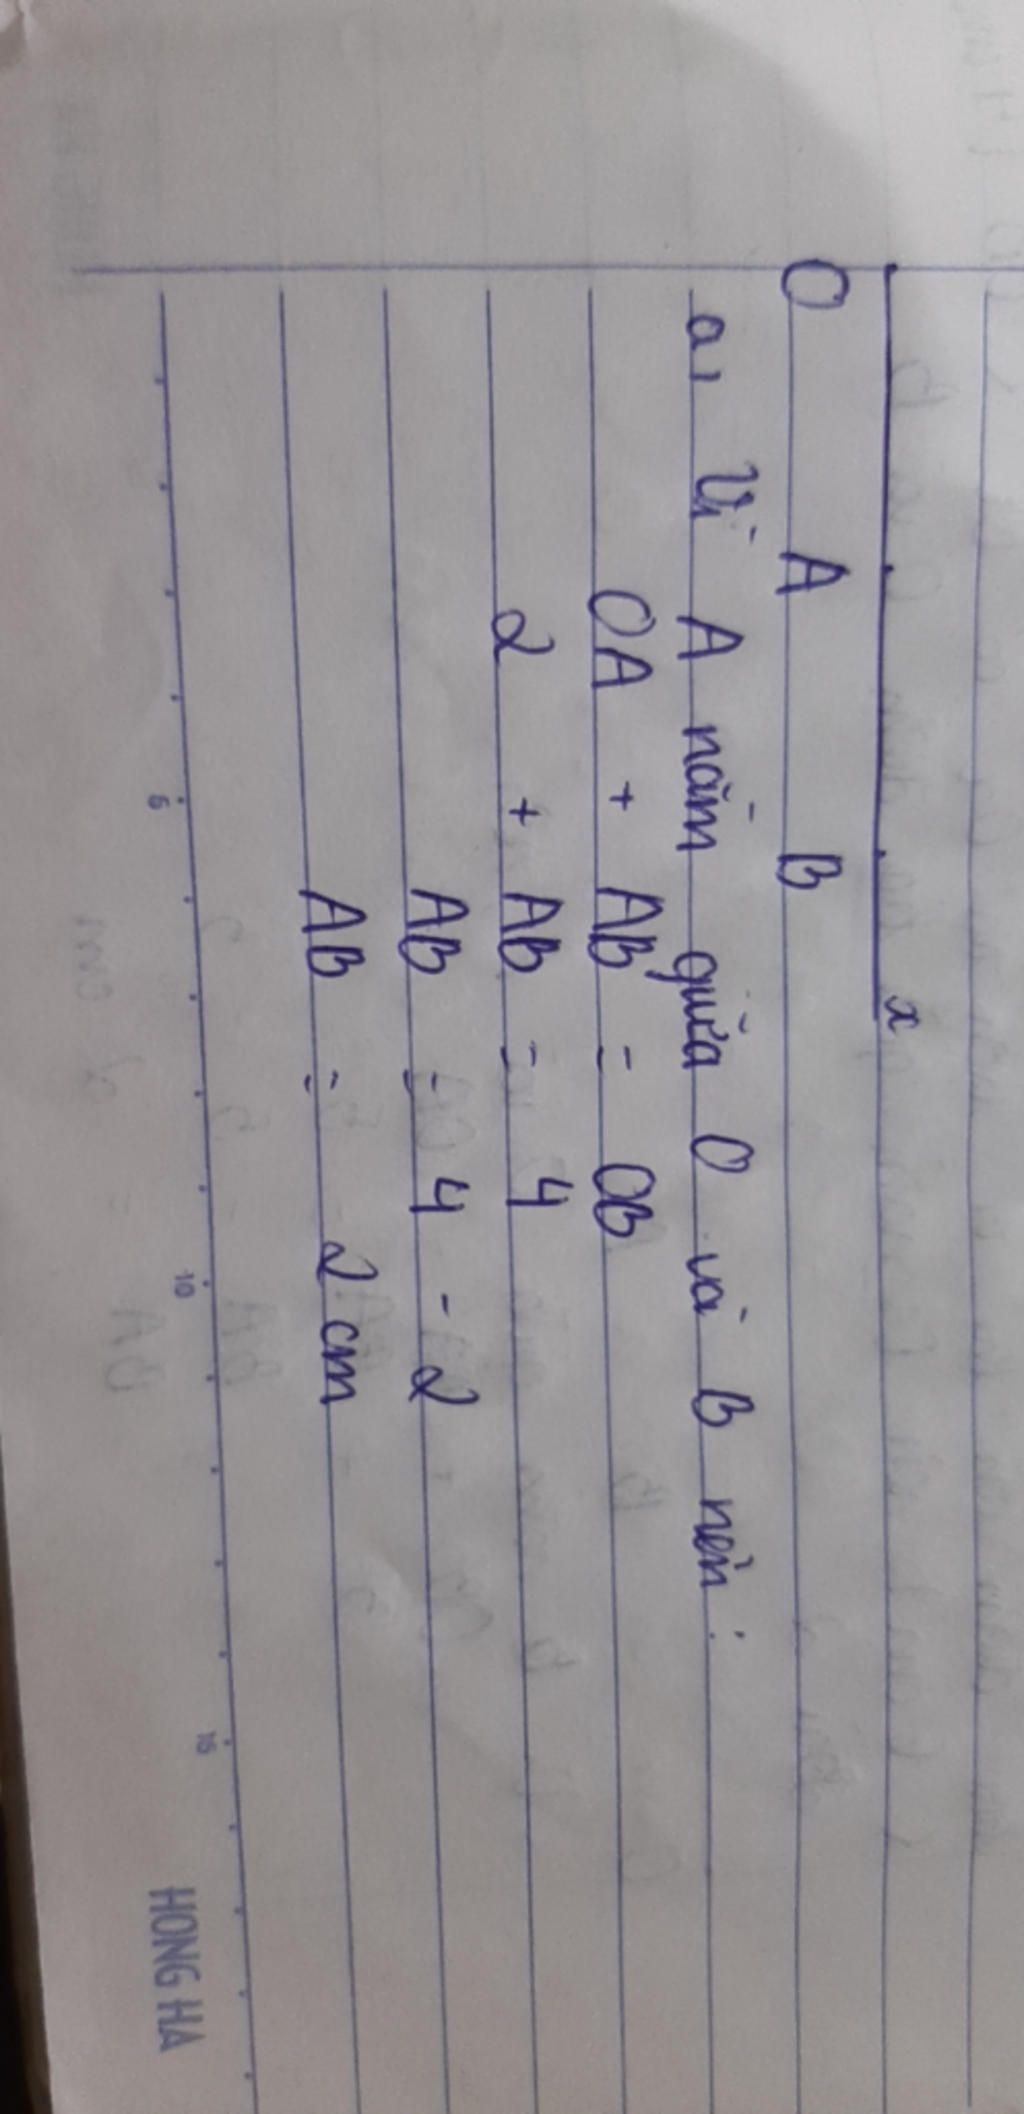 x
O A B
a, Vì A nằm giữa O và B nên:
OA + AB = OB
2 + AB = 4
AB = 4 - 2
AB = 2 cm
5 10 15
HONG HA